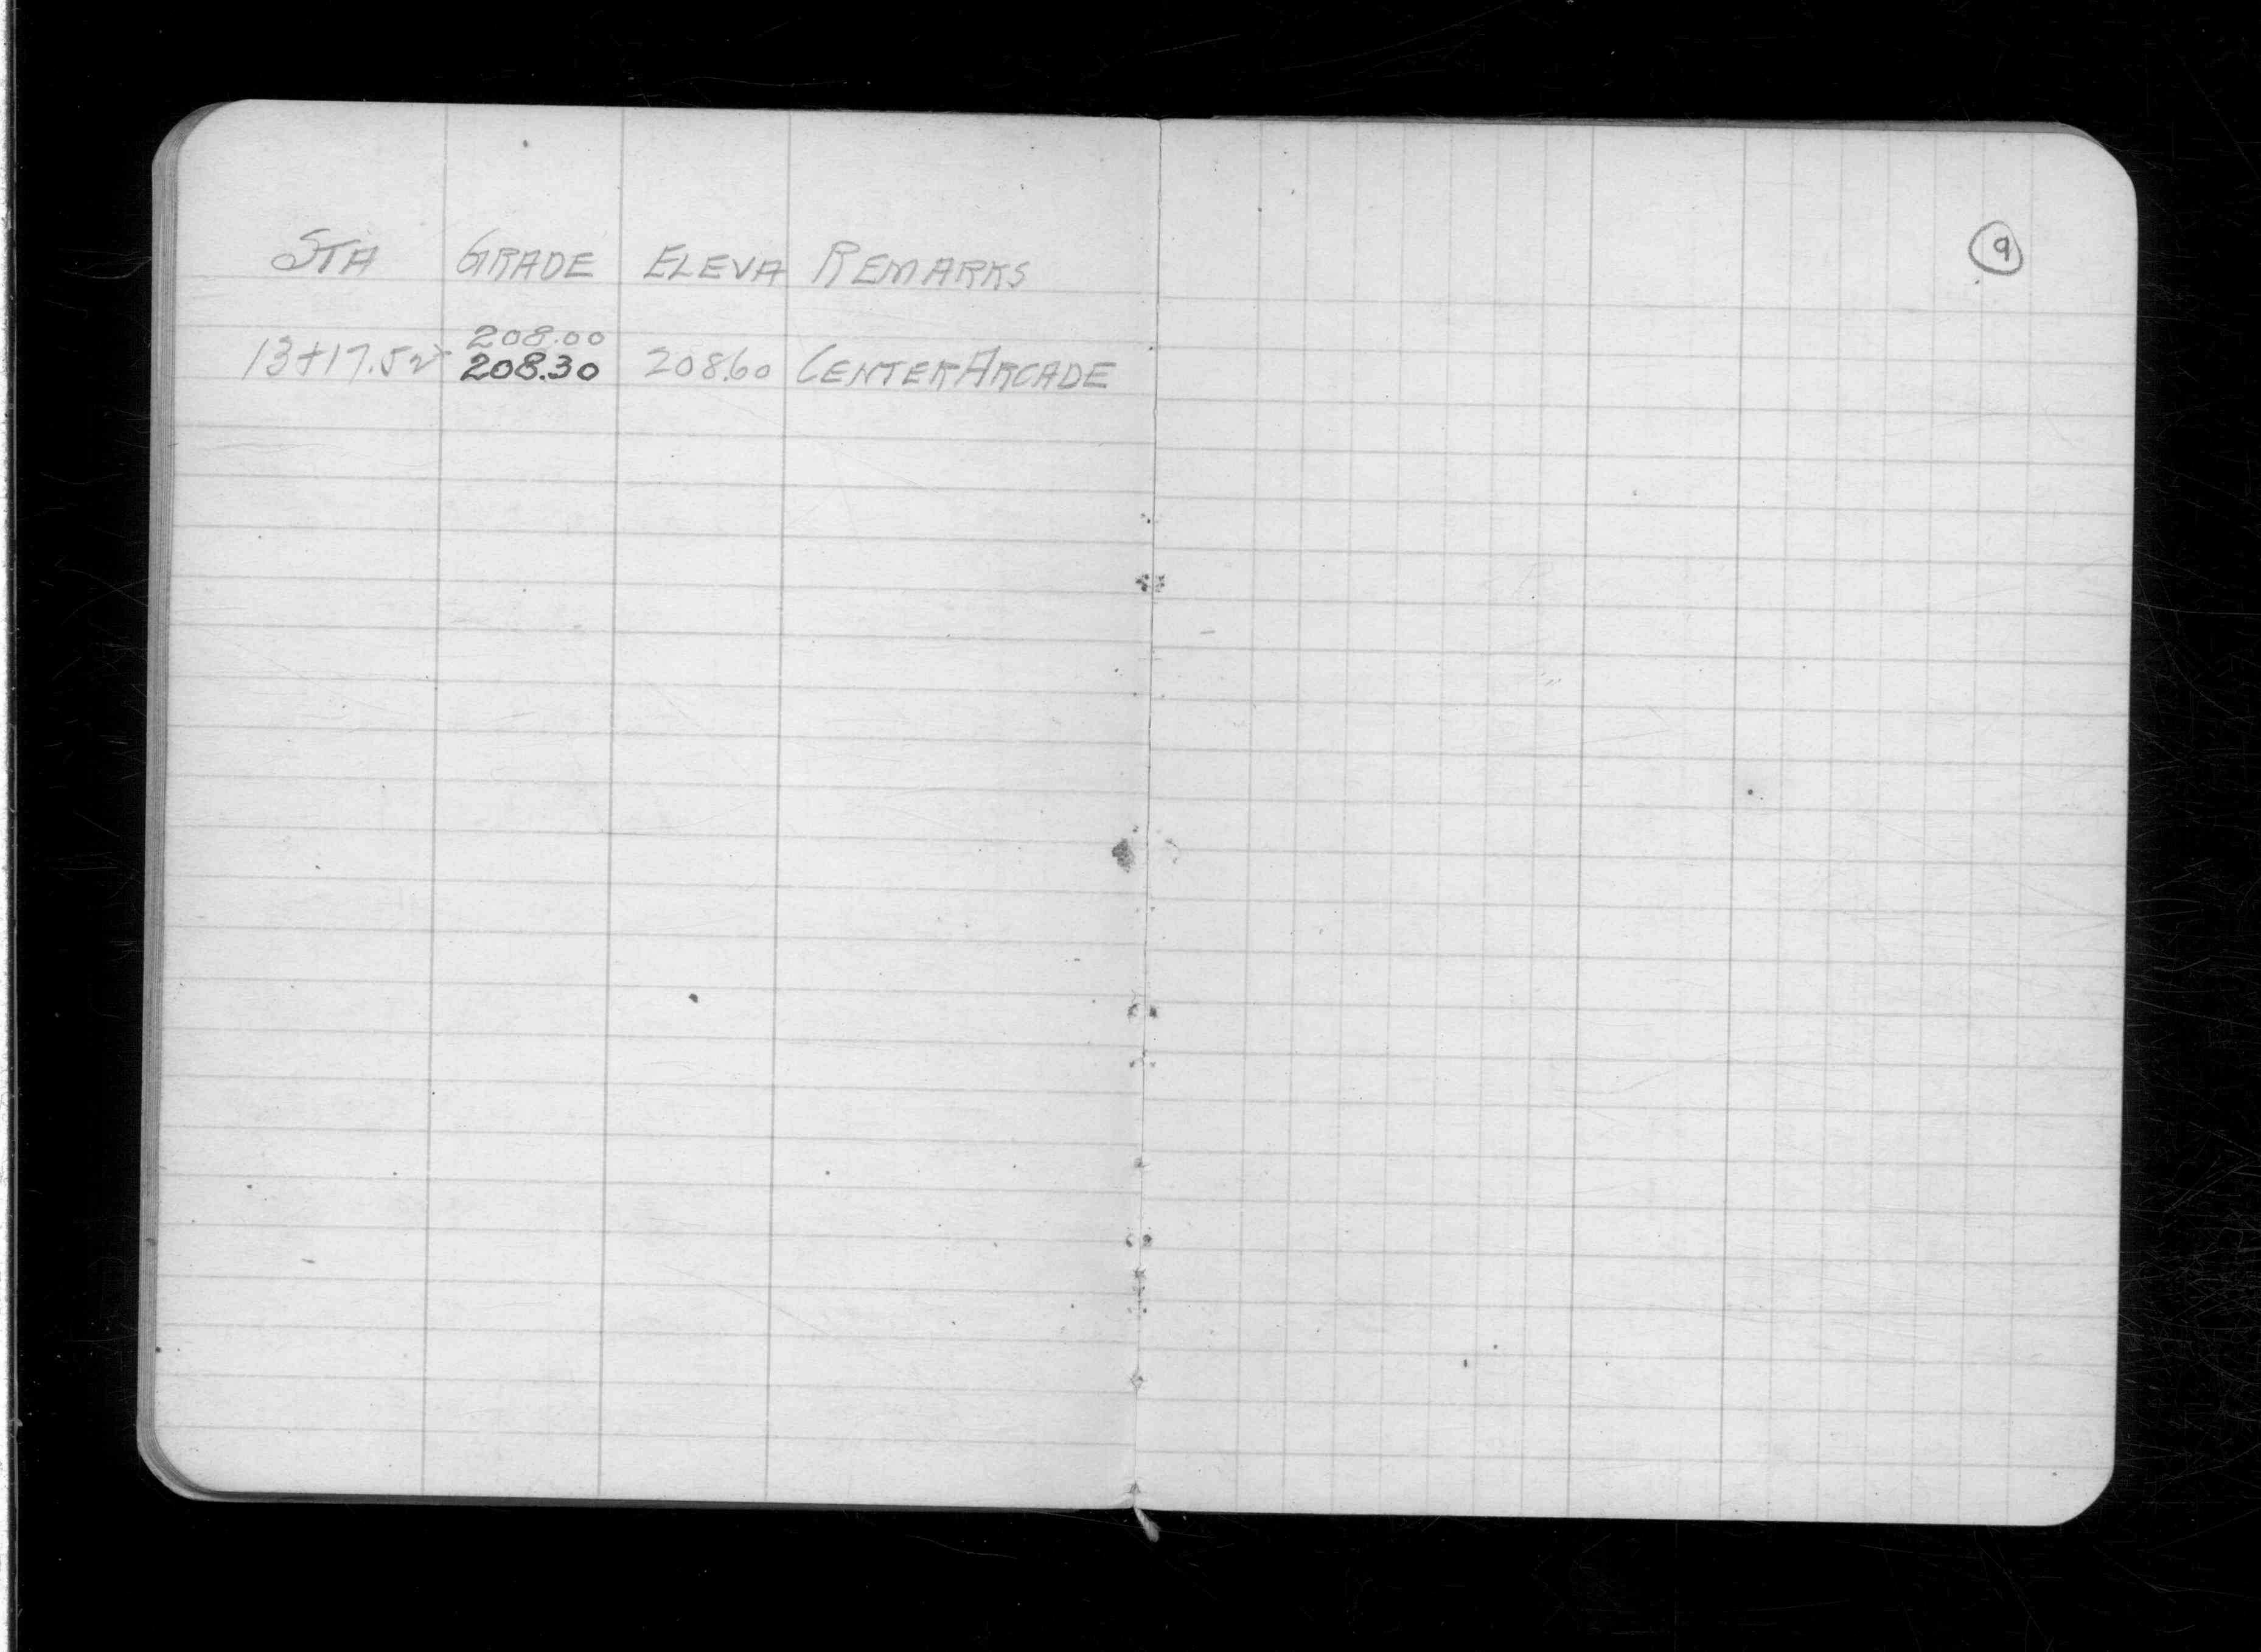 STA GRADE ELEVA REMARKS
208.00
13+17.52 208.30 208.60 CENTER ARCADE
9